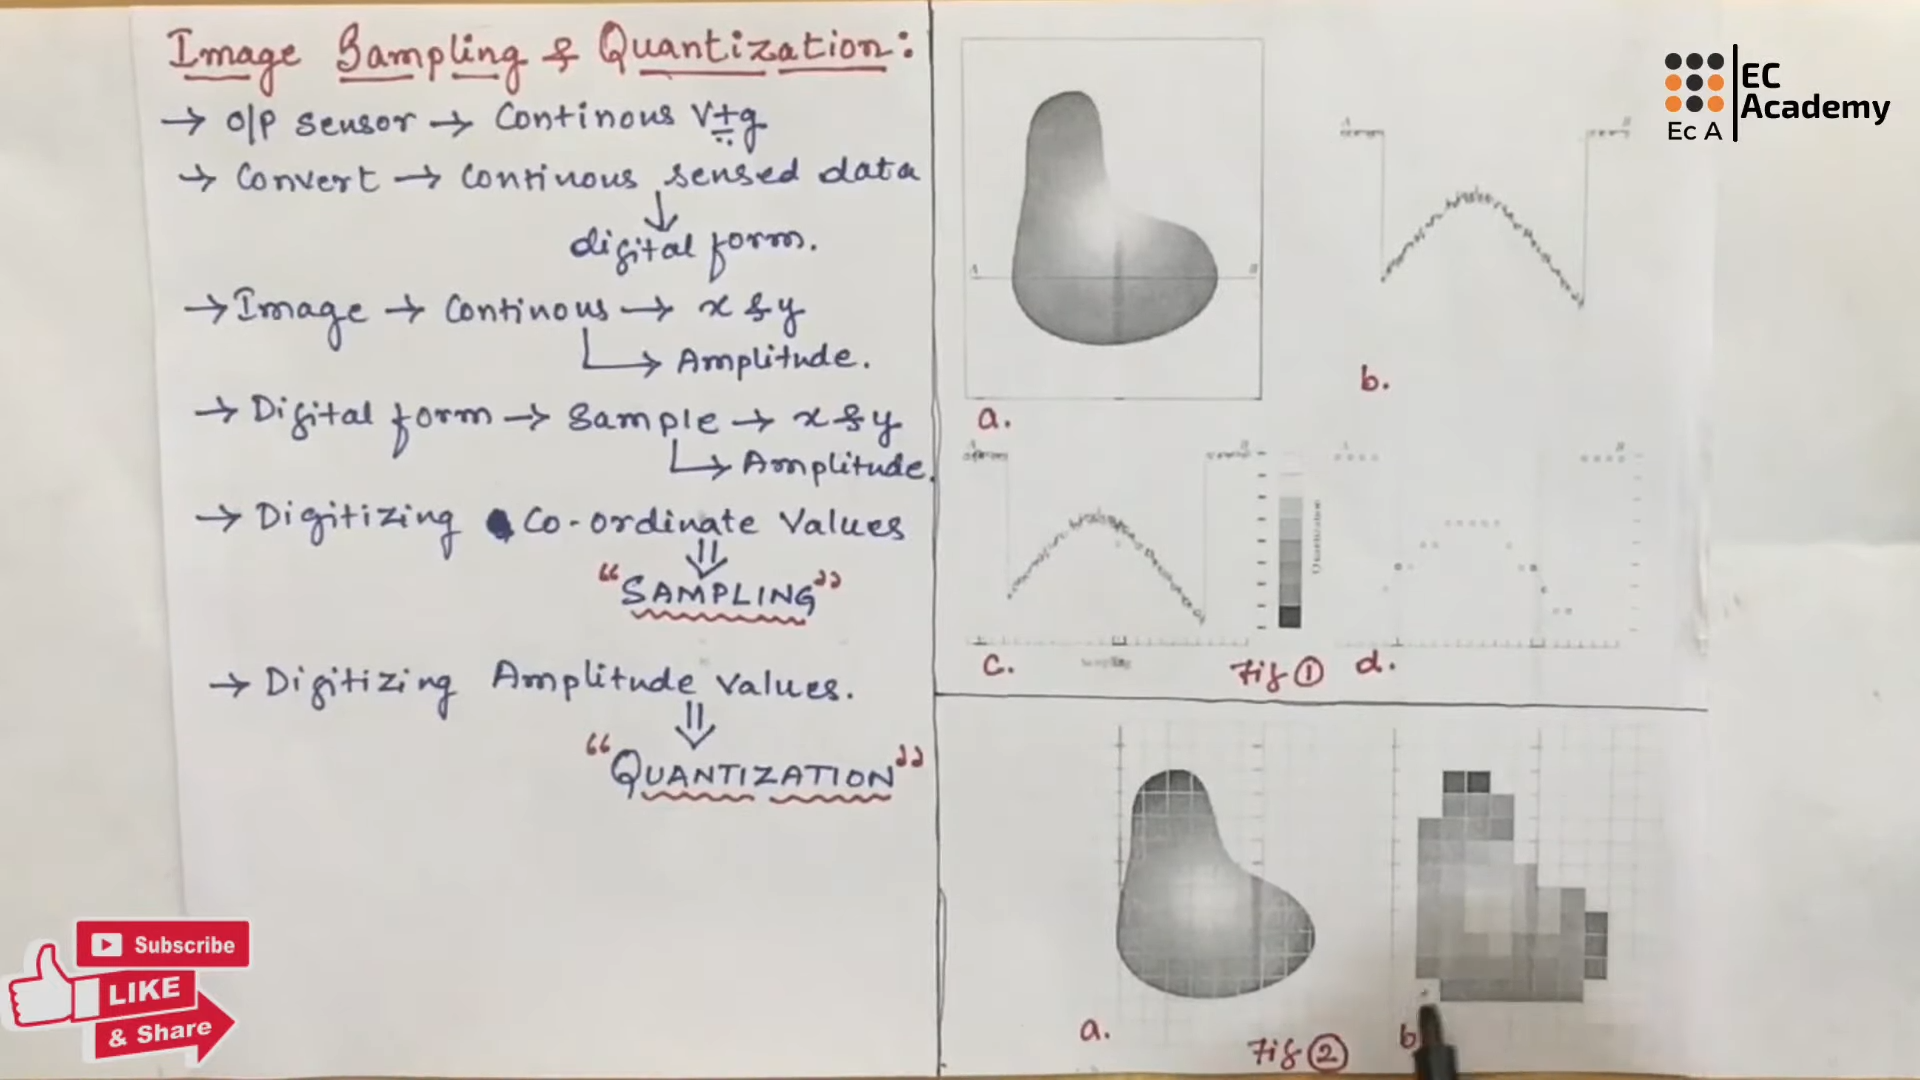 Image Sampling & Quantization:
→ O/P sensor → Continous Vtg
→ Convert → Continous sensed data
↓
digital form.
→ Image → Continous → x & y
↳ Amplitude.
→ Digital form → Sample → x & y
↳ Amplitude.
→ Digitizing Co-ordinate Values
⇓
"SAMPLING"
→ Digitizing Amplitude values.
⇓
"QUANTIZATION"
EC
Academy
Ec A
A B
A B
a.
b.
A B
A B
Quantization
Sampling
c.
Fig ①
d.
a.
Fig ②
b
Subscribe
LIKE
& Share